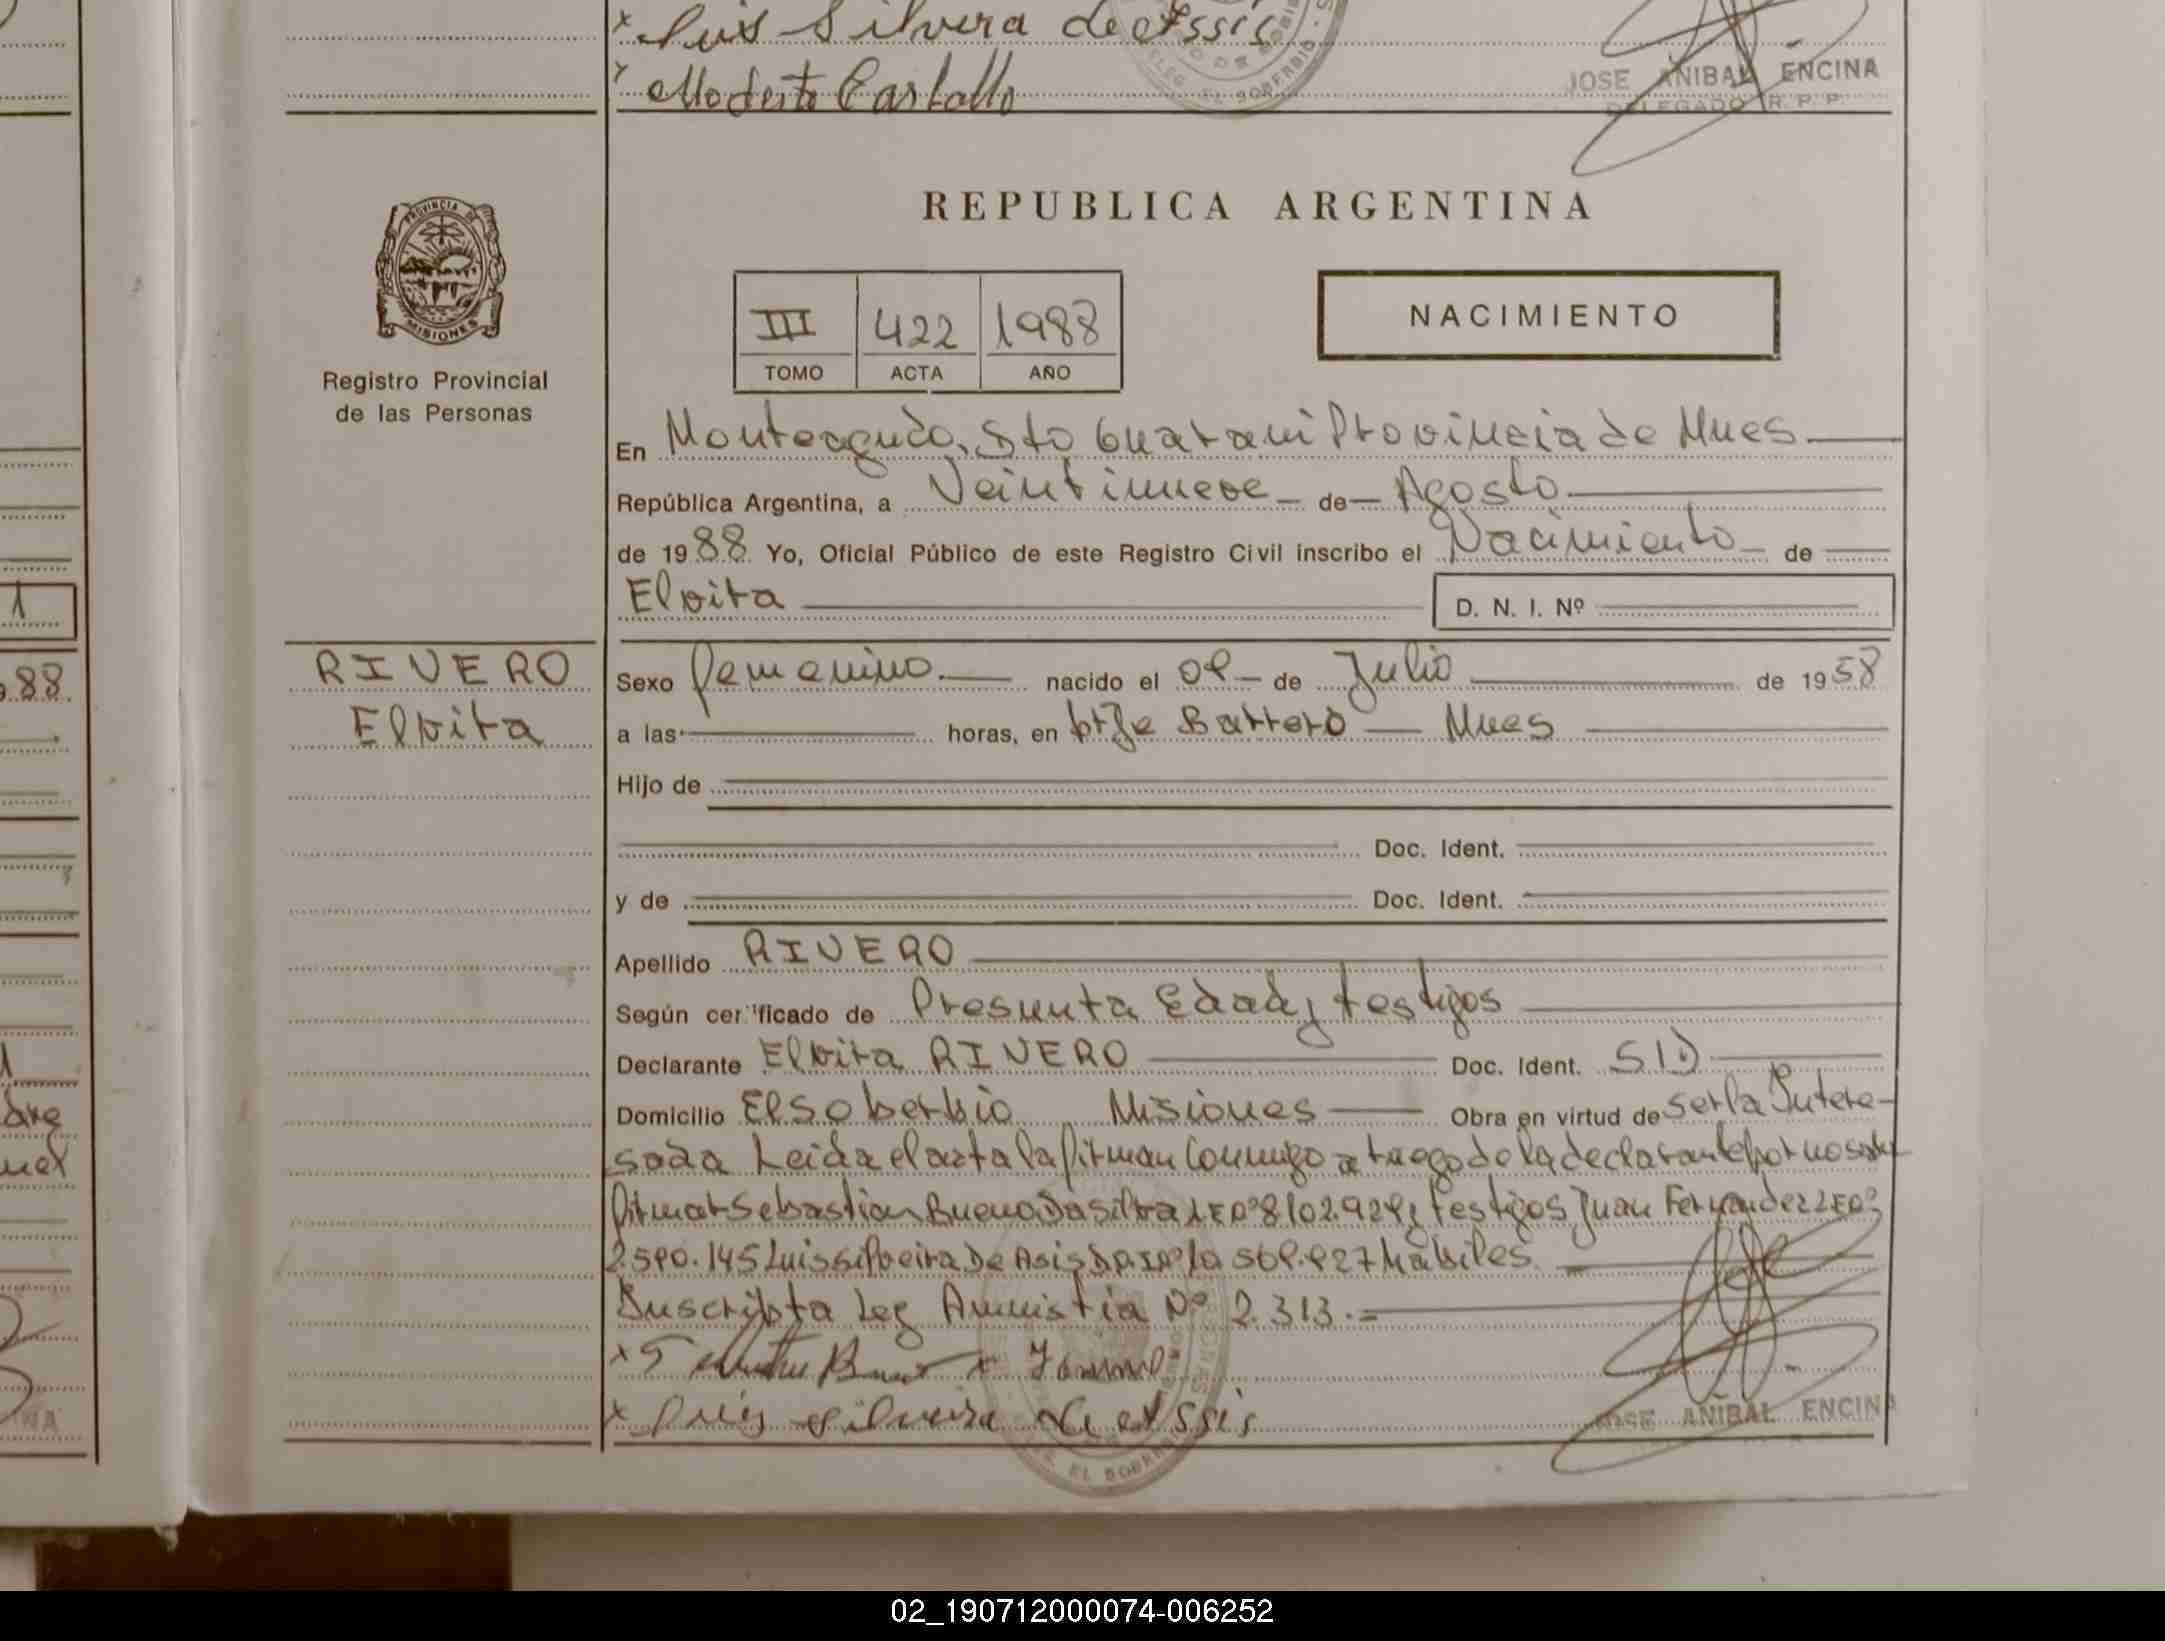 x Luis Silvera de Assis
Modesto Castollo
JOSE ANIBAL ENCINA
DELEGADO R. P. P.
REPUBLICA ARGENTINA
PROVINCIA DE
MISIONES
Registro Provincial
de las Personas
III 422 1988
TOMO ACTA AÑO
NACIMIENTO
En Monteagudo, Dto Guarani Provincia de Mnes
República Argentina, a Veintinueve de Agosto
de 1988 Yo, Oficial Público de este Registro Civil inscribo el Nacimiento de
Elvira
D. N. I. Nº
1
88
RIVERO
Elvira
Sexo femenino nacido el 08 de Julio de 1958
a las horas, en Barrero Mnes
Hijo de
Doc. Ident.
y de Doc. Ident.
Apellido RIVERO
Según certificado de Presunta Edad y testigos
Declarante Elvira RIVERO Doc. Ident. S/D
Domicilio El Soberbio Misiones Obra en virtud de ser la Intere-
sada Leida el acta la firman conmigo a ruego de la declarante por no saber
firmar Sebastian Bueno Da Silva 8102.928 y testigos Juan Fernandez
2.590.145 Luis Silveira De Asis habiles
Suscripta Ley Amnistia Nº 2.313.=
x Luis Silveira de Assis
EL SOBERBIO
JOSE ANIBAL ENCINA
02_190712000074-006252